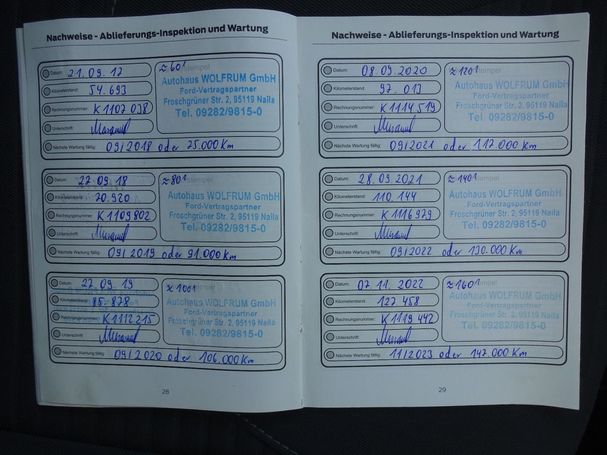 Nachweise - Ablieferungs-Inspektion und Wartung
Datum: 21.09.17
≈ 60t
Kilometerstand: 54.693
Rechnungsnummer: K1107038
Unterschrift:
Autohaus WOLFRUM GmbH
Ford-Vertragspartner
Froschgrüner Str. 2, 95119 Naila
Tel. 09282/9815-0
Nächste Wartung fällig: 09/2018 oder 75.000 Km
Datum: 27.09.18
≈ 80t
Kilometerstand: 70.920
Rechnungsnummer: K1109802
Unterschrift:
Autohaus WOLFRUM GmbH
Ford-Vertragspartner
Froschgrüner Str. 2, 95119 Naila
Tel. 09282/9815-0
Nächste Wartung fällig: 09/2019 oder 91.000 Km
Datum: 27.09.19
≈ 100t
Kilometerstand: 85.878
Rechnungsnummer: K1112215
Unterschrift:
Autohaus WOLFRUM GmbH
Ford-Vertragspartner
Froschgrüner Str. 2, 95119 Naila
Tel. 09282/9815-0
Nächste Wartung fällig: 09/2020 oder 106.000 Km
28
Nachweise - Ablieferungs-Inspektion und Wartung
Datum: 08.09.2020
≈ 120t
Kilometerstand: 97.013
Rechnungsnummer: K1114519
Unterschrift:
Autohaus WOLFRUM GmbH
Ford-Vertragspartner
Froschgrüner Str. 2, 95119 Naila
Tel. 09282/9815-0
Nächste Wartung fällig: 09/2021 oder 112.000 Km
Datum: 28.09.2021
≈ 140t
Kilometerstand: 110.144
Rechnungsnummer: K1116979
Unterschrift:
Autohaus WOLFRUM GmbH
Ford-Vertragspartner
Froschgrüner Str. 2, 95119 Naila
Tel. 09282/9815-0
Nächste Wartung fällig: 09/2022 oder 130.000 Km
Datum: 07.11.2022
≈ 160t
Kilometerstand: 127.458
Rechnungsnummer: K1119442
Unterschrift:
Autohaus WOLFRUM GmbH
Ford-Vertragspartner
Froschgrüner Str. 2, 95119 Naila
Tel. 09282/9815-0
Nächste Wartung fällig: 11/2023 oder 147.000 Km
29